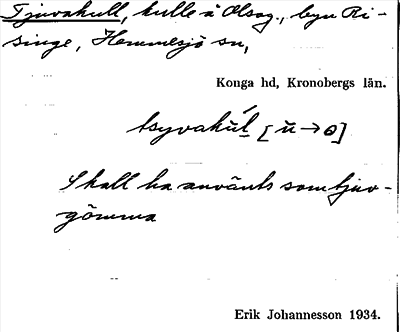 Tjuvakull, kulle å Olsag., byn Ri-
singe, Hemmesjö sn,
Konga hd, Kronobergs län.
tsyvakŭ́l [ŭ→ɵ]
Skall ha använts som tjuv-
gömma
Erik Johannesson 1934.